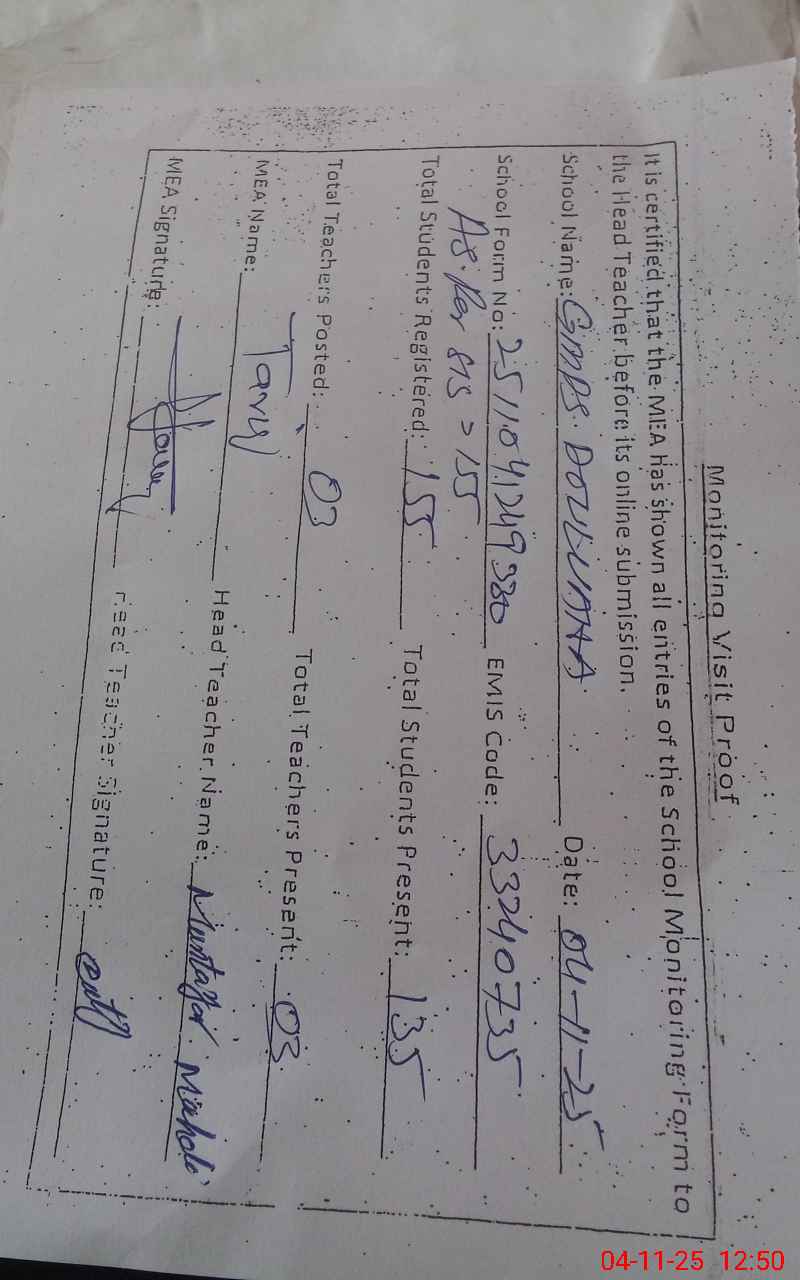 Monitoring Visit Proof
It is certified that the MEA has shown all entries of the School Monitoring Form to
the Head Teacher before its online submission.
School Name: GMPS. Date: 04-11-25
School Form No: EMIS Code: 33240735
As. Per SIS > 155
Total Students Registered: 155 Total Students Present: 135
Total Teachers Posted: 03 Total Teachers Present: 03
MEA Name: Tariq Head Teacher Name:
MEA Signature: Head Teacher Signature:
04-11-25 12:50